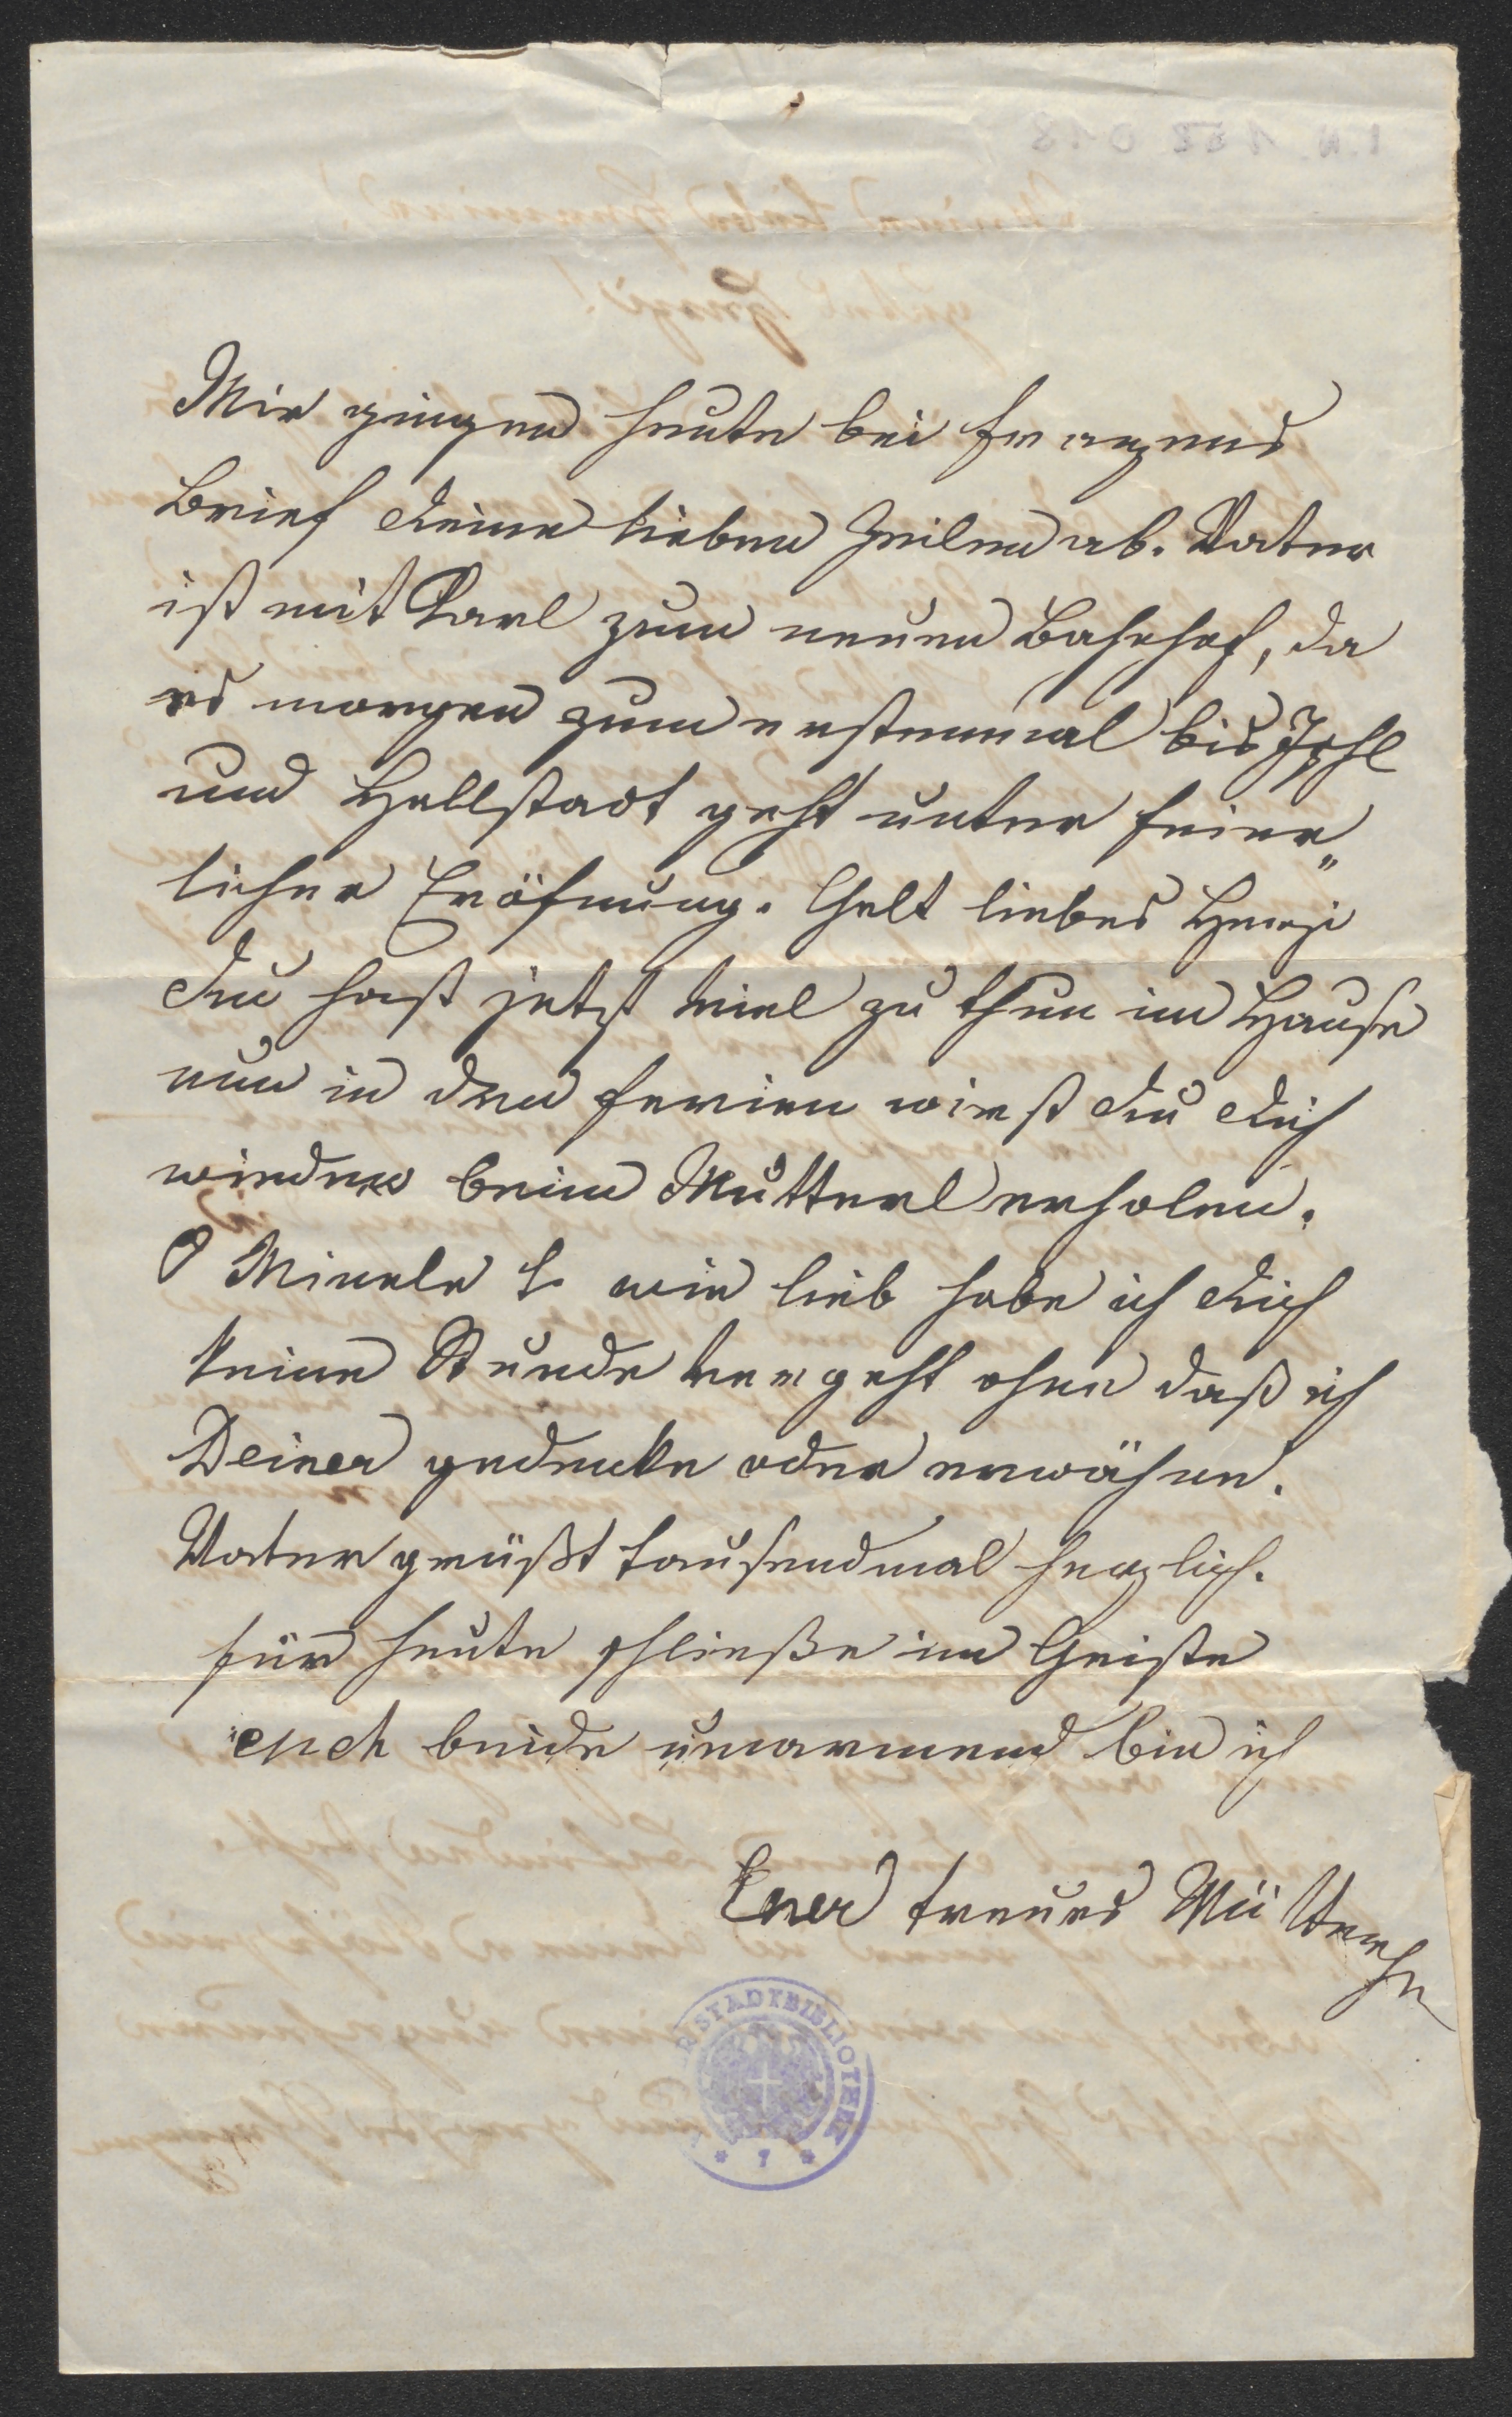 Mir gingen heute bei Franzens
Brief deine lieben Zeilen ab. Vater
ist mit Karl zum neuen Bahnhof, da
es morgen zum erstenmal bis Ischl
und Hallstadt geht unter feier„
licher Eröfnung. Gelt liebes Herzi
du hast jetzt viel zu thun im Hause
nun in den Ferien wirst du dich
wieder beim Mutterl erholen.
O Minerle wie lieb habe ich dich
keine Stunde vergeht ohne daß ich
Deiner gedenke oder erwähne.
Vater grüßt tausendmal herzlich.
für heute schließe im Geiste
euch beide umarmend bin ich
Euer treues Mütterchen
STADTBIBLIOTHEK
* 7 *